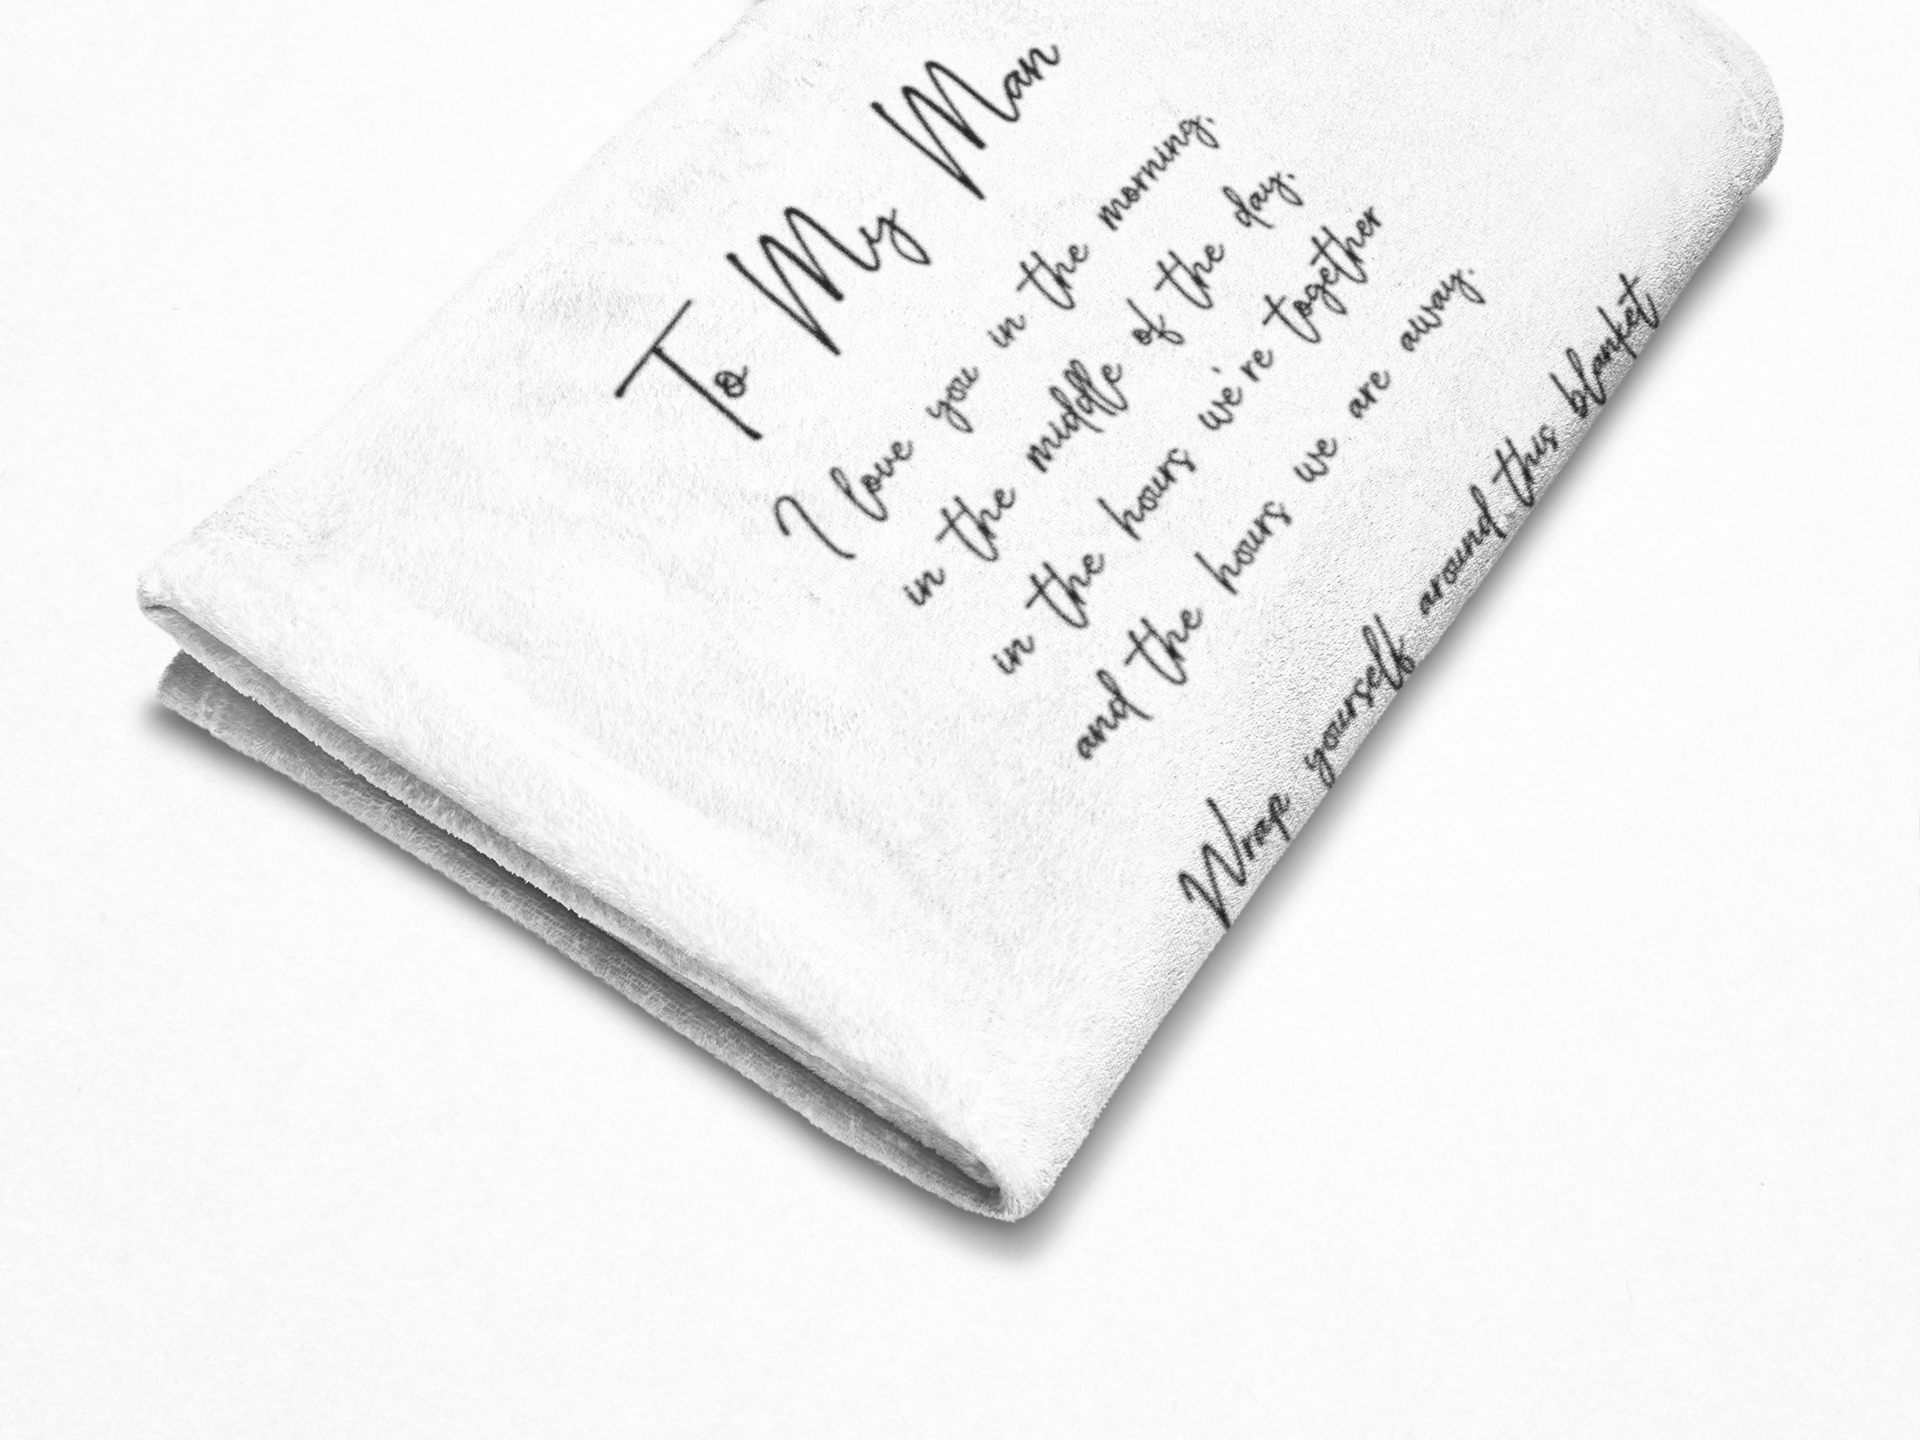 To My Man
I love you in the morning.
in the middle of the day.
in the hours we're together
and the hours we are away.
Wrap yourself around this blanket